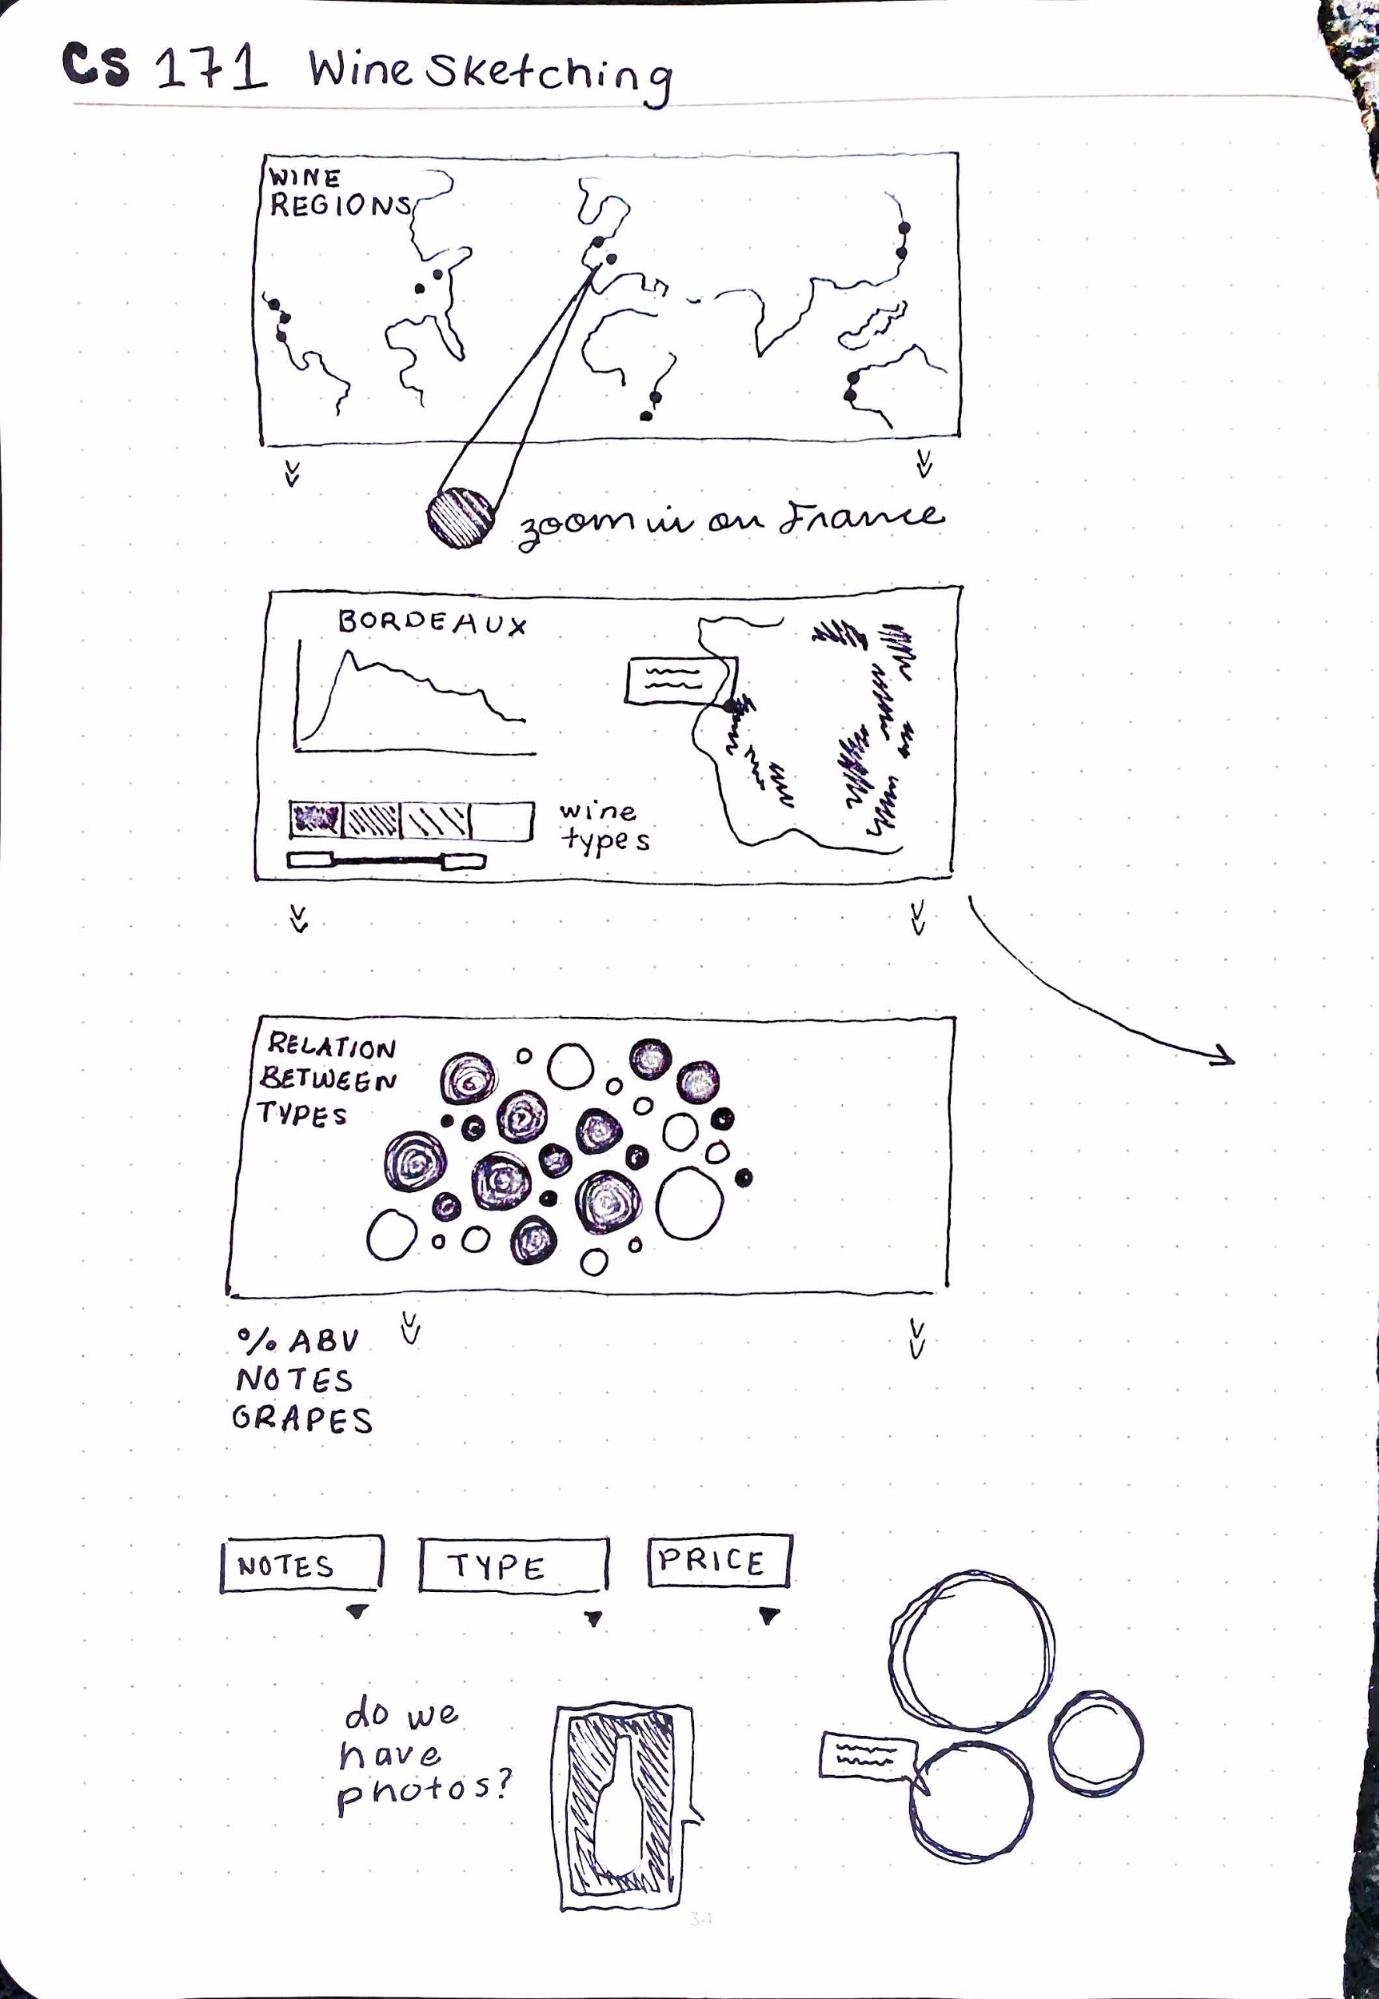 CS 171 Wine Sketching
WINE
REGIONS
zoom in on France
BORDEAUX
wine
types
RELATION
BETWEEN
TYPES
% ABV
NOTES
GRAPES
NOTES
TYPE
PRICE
do we
have
photos?